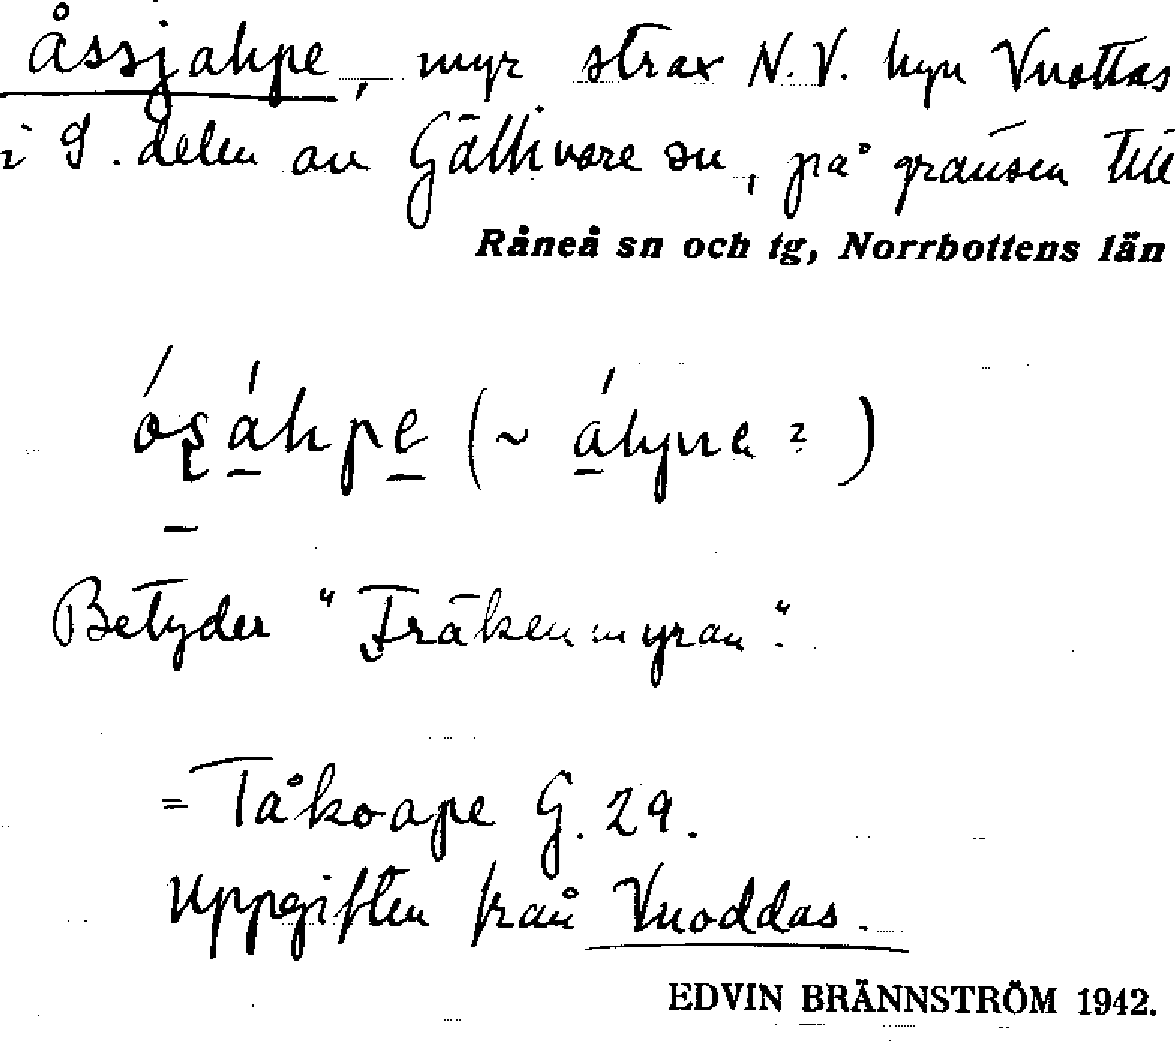 åssjahpe, myr strax N.V. byn Vuottas
i S. delen av Gällivare sn, på gränsen till
Råneå sn och tg, Norrbottens län
(~ ?)
Betyder "Fräkenmyran".
= Tåkoape G. 29.
Uppgiften från Vuoddas.
EDVIN BRÄNNSTRÖM 1942.